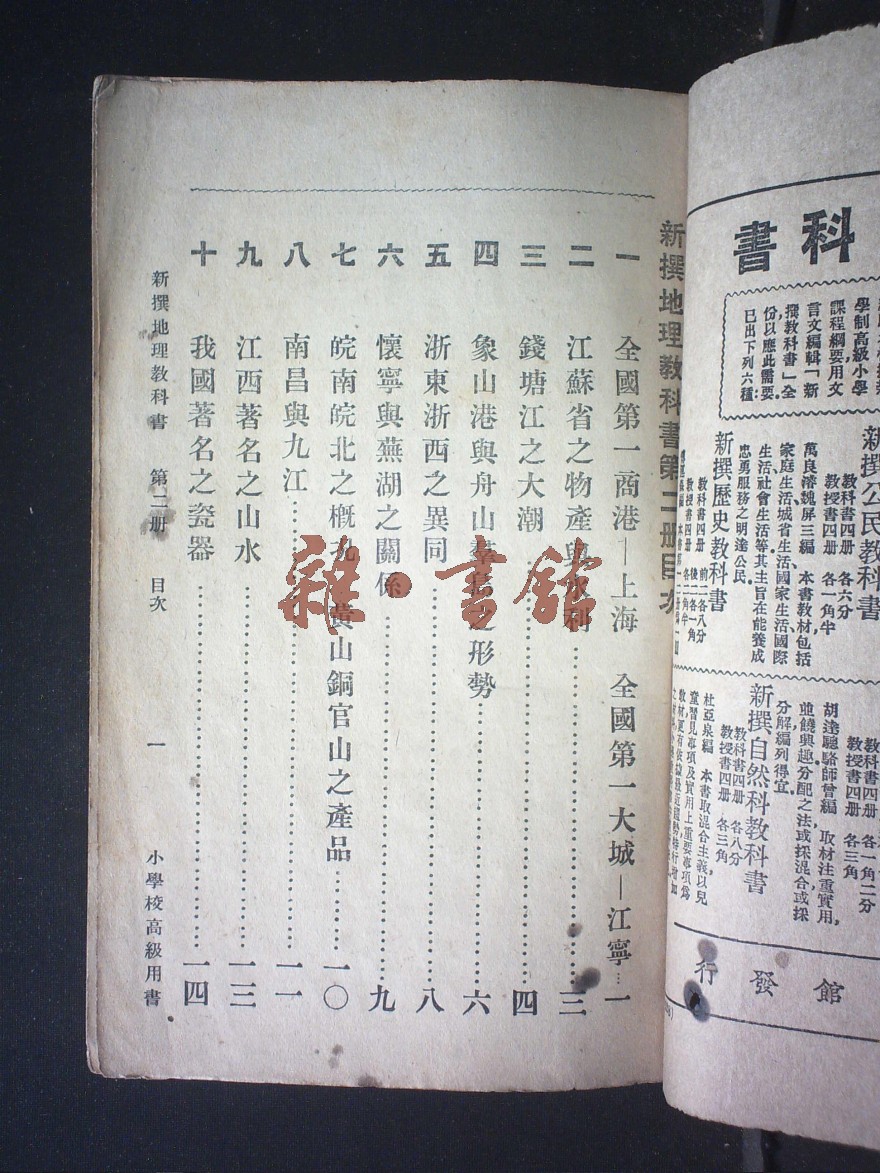 科書
學制高級小學
課程綱要用文
言文編輯「新
撰教科書」全
份以應此需要
已出下列六種：
新撰公民教科書
教科書四册 各六分
教授書四册 各一角半
萬良濬魏屏三編 本書教材包括
家庭生活、城省生活、國家生活、國際
生活社會生活等其主旨在能養成
忠勇服務之明達公民。
新撰歷史教科書
教科書四册 前二各八分 後二各一角
教授書四册 各二角半
教科書四册 各一角二分
教授書四册 各三角
胡達聰駱師曾編 取材注重實用，
並饒興趣分配之法或採混合或採
分解編列得宜。
新撰自然科教科書
教科書四册 各八分
教授書四册 各三角
杜亞泉編 本書取混合主義以兒
童習見事項及實用上重要事項爲
館發行
新撰地理教科書第二册目次
一 全國第一商港—上海 全國第一大城—江寧…一
二 江蘇省之物產與水利…三
三 錢塘江之大潮…四
四 象山港與舟山羣島之形勢…六
五 浙東浙西之異同…八
六 懷寧與蕪湖之關係…九
七 皖南皖北之概況 黃山銅官山之產品…一〇
八 南昌與九江…一一
九 江西著名之山水…一三
十 我國著名之瓷器…一四
新撰地理教科書 第二册 目次 一 小學校高級用書
雜·書館